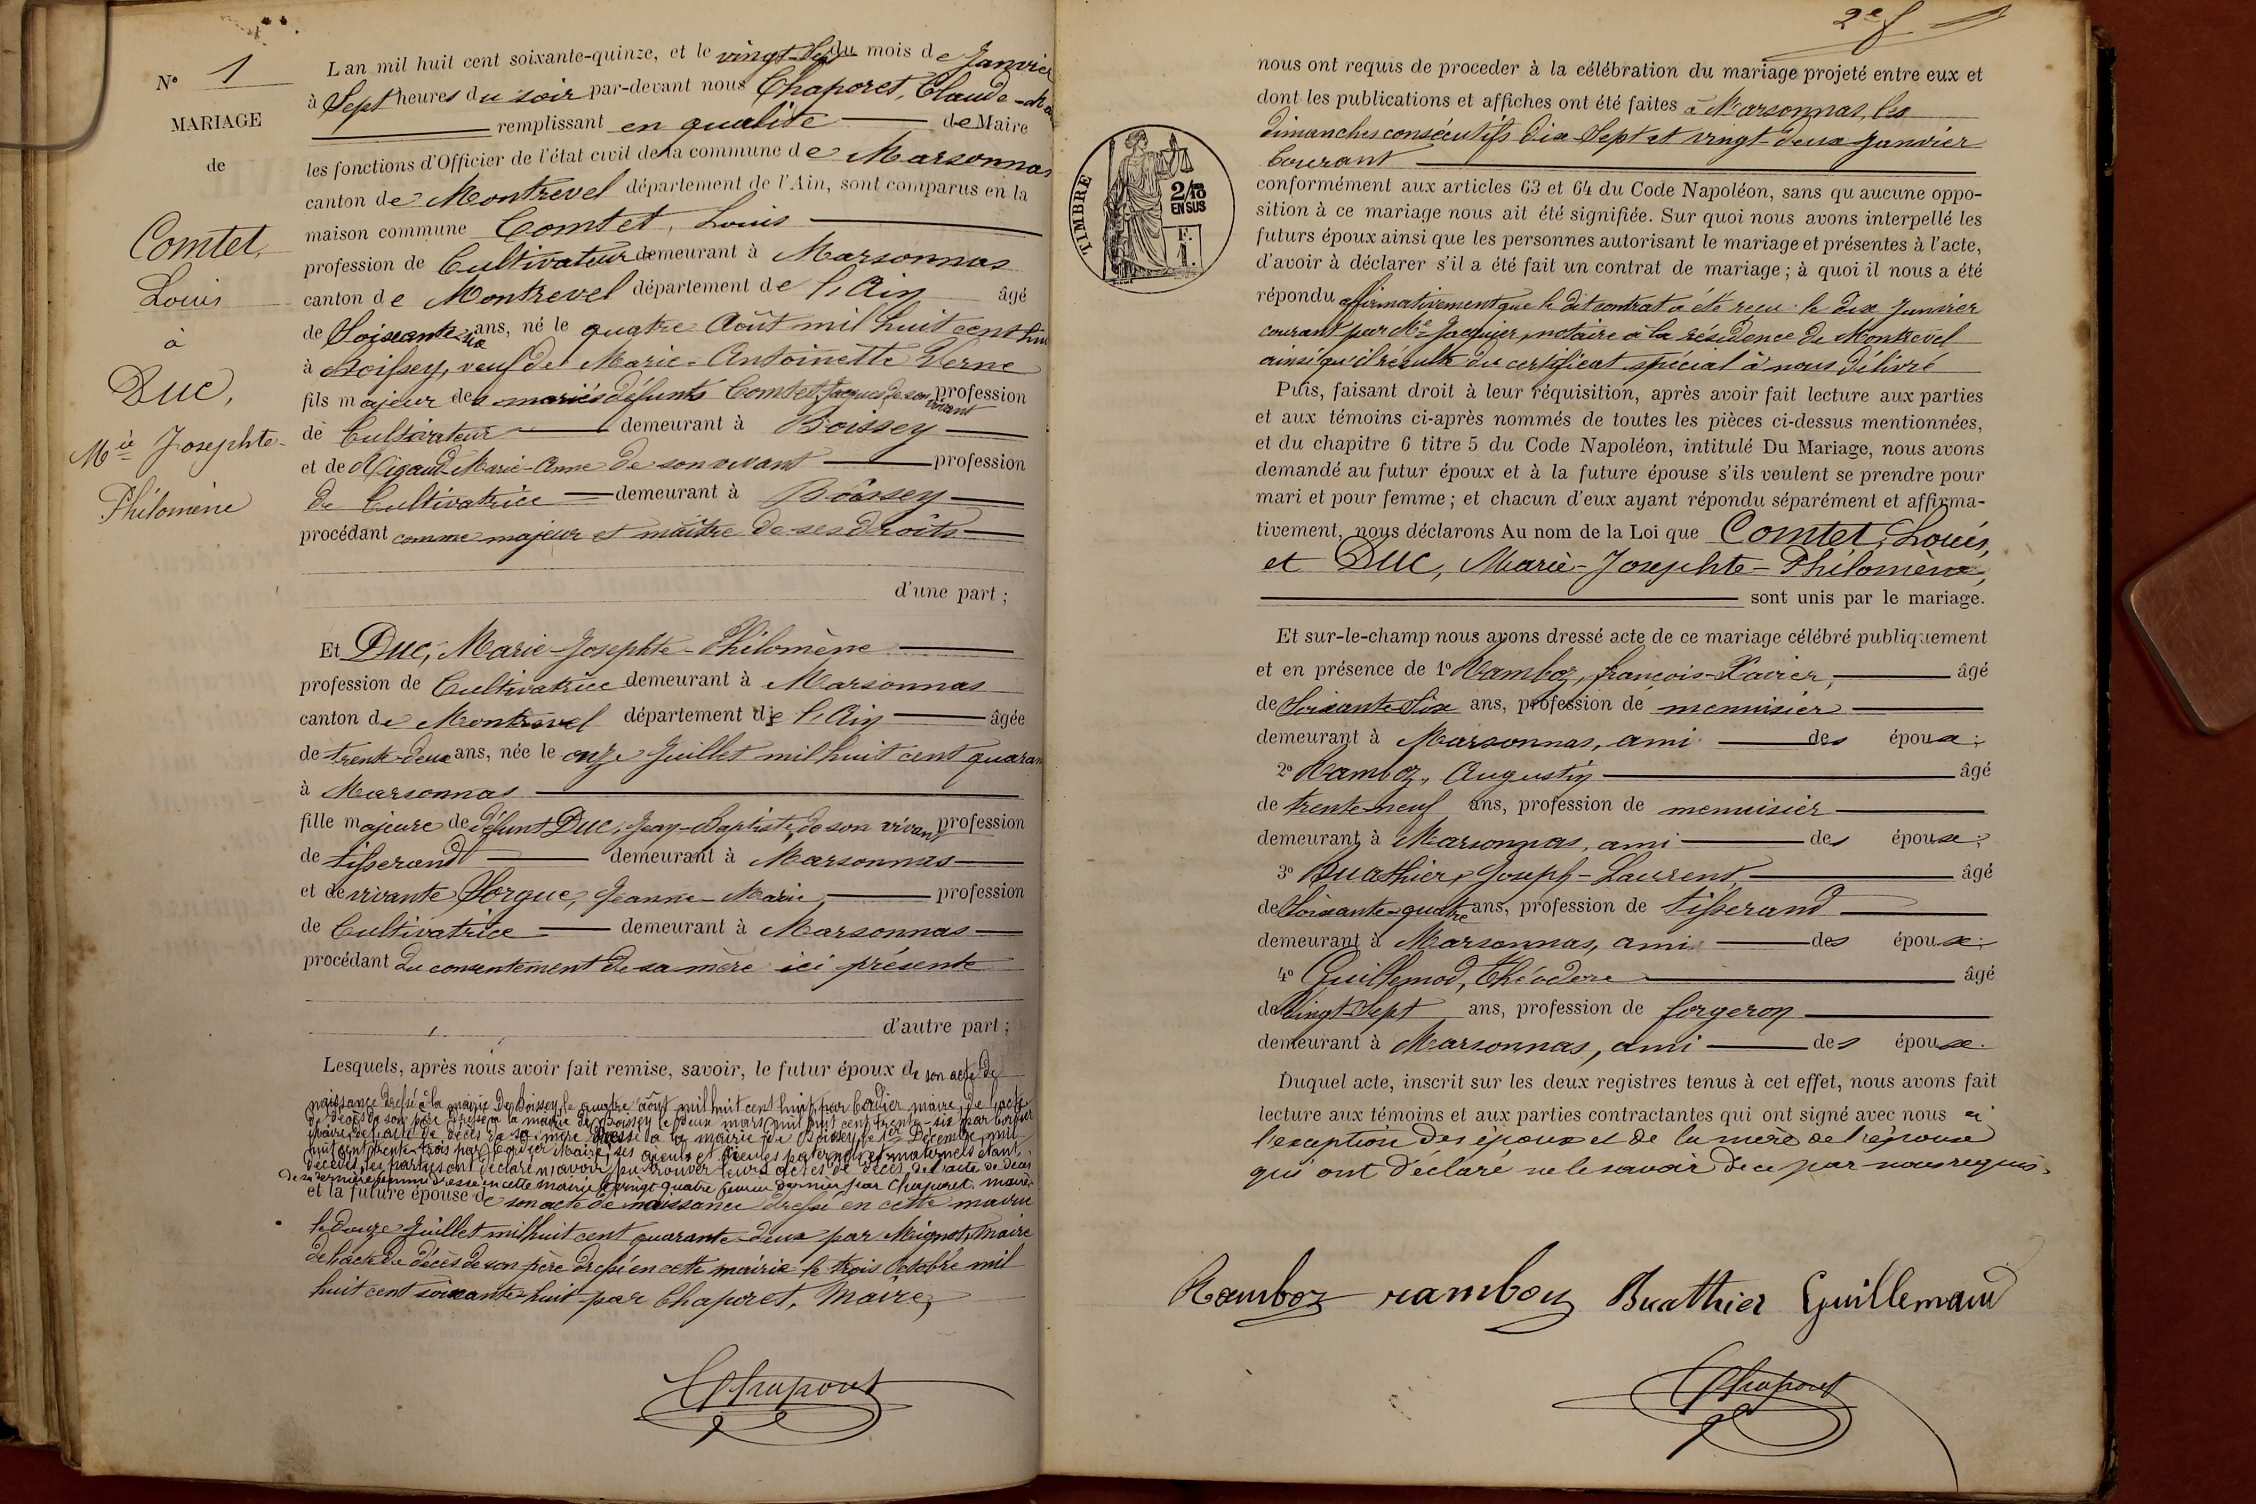 N° 1
MARIAGE
de
Comtet,
Louis
à
Duc,
Mie Josephte-
Philomène
L'an mil huit cent soixante-quinze, et le vingt-Sept du mois de Janvier
à Sept heures du soir par-devant nous Chaporet, Claude-
remplissant en qualité de Maire
les fonctions d'Officier de l'état civil de la commune de Marsonnas
canton de Montrevel département de l'Ain, sont comparus en la
maison commune Comtet, Louis
profession de Cultivateur demeurant à Marsonnas
canton de Montrevel département de l'Ain âgé
de Soixante-six ans, né le quatre Août mil huit cent huit
à Boissey, veuf de Marie-Antoinette Verne
fils majeur des mariés défunts Comtet Jaques de son vivant profession
de Cultivateur demeurant à Boissey
et de Rigaud Marie-Anne de son vivant profession
de Cultivatrice demeurant à Boissey
procédant comme majeur et maître de ses droits
d'une part ;
Et Duc, Marie-Josephte-Philomène
profession de Cultivatrice demeurant à Marsonnas
canton de Montrevel département de l'Ain âgée
de trente-deux ans, née le onze Juillet mil huit cent quaran
à Marsonnas
fille majeure de défunt Duc, Jean-Baptiste, de son vivant profession
de tisserand demeurant à Marsonnas
et de vivante Sorgue, Jeanne-Marie, profession
de Cultivatrice demeurant à Marsonnas
procédant du consentement de sa mère ici présente
d'autre part ;
Lesquels, après nous avoir fait remise, savoir, le futur époux de son acte de
naissance dressé à la mairie de Boissey, le quatre août mil huit cent huit, par Cordier, maire, de l'acte
de décès de son père dressé à la mairie de Boissey le deux mars mil huit cent trente-six par
maire, de l'acte de décès de sa mère dressé à la mairie de Boissey, le 1er Décembre mil
huit cent trente-trois par Cordier Maire, ses aïeuls et aïeules paternels et maternels étant
décédés, les parties ont déclaré n'avoir pu trouver leurs actes de décès, de l'acte de décès
de sa dernière femme dressé en cette mairie le vingt quatre février dernier par Chaporet, maire,
et la future épouse de son acte de naissance dressé en cette mairie
le douze Juillet mil huit cent quarante-deux par Mignot, Maire
de l'acte de décès de son père dressé en cette mairie le trois Octobre mil
huit cent soixante-huit par Chaporet, Maire,
Chaporet
2e f
nous ont requis de proceder à la célébration du mariage projeté entre eux et
dont les publications et affiches ont été faites à Marsonnas, les
dimanches consécutifs dix-Sept et vingt-deux Janvier
Courant
TIMBRE
2/10
EN SUS
conformément aux articles 63 et 64 du Code Napoléon, sans qu'aucune oppo-
sition à ce mariage nous ait été signifiée. Sur quoi nous avons interpellé les
futurs époux ainsi que les personnes autorisant le mariage et présentes à l'acte,
d'avoir à déclarer s'il a été fait un contrat de mariage ; à quoi il nous a été
répondu affirmativement que le dit contrat a été reçu le dix Janvier
courant par Me Jacquier, notaire à la résidence de Montrevel
ainsi qu'il résulte du certificat spécial à nous délivré
Puis, faisant droit à leur réquisition, après avoir fait lecture aux parties
et aux témoins ci-après nommés de toutes les pièces ci-dessus mentionnées,
et du chapitre 6 titre 5 du Code Napoléon, intitulé Du Mariage, nous avons
demandé au futur époux et à la future épouse s'ils veulent se prendre pour
mari et pour femme ; et chacun d'eux ayant répondu séparément et affirma-
tivement, nous déclarons Au nom de la Loi que Comtet, Louis,
et Duc, Marie-Josephte-Philomène,
sont unis par le mariage.
Et sur-le-champ nous avons dressé acte de ce mariage célébré publiquement
et en présence de 1° Ramboz, françois-Xavier, âgé
de Soixante-Six ans, profession de menuisier
demeurant à Marsonnas, ami des époux ;
2° Ramboz, Augustin âgé
de trente-neuf ans, profession de menuisier
demeurant à Marsonnas, ami des époux ;
3° Buathier, Joseph-Laurent âgé
de Soixante-quatre ans, profession de tisserand
demeurant à Marsonnas, ami des époux ;
4° Guillemod, Théodore âgé
de Vingt-Sept ans, profession de forgeron
demeurant à Marsonnas, ami des époux.
Duquel acte, inscrit sur les deux registres tenus à cet effet, nous avons fait
lecture aux témoins et aux parties contractantes qui ont signé avec nous à
l'exception des époux et de la mère de l'épouse
qui ont déclaré ne le savoir de ce par nous requis.
Ramboz ramboz Buathier Guillemaud
Chaporet